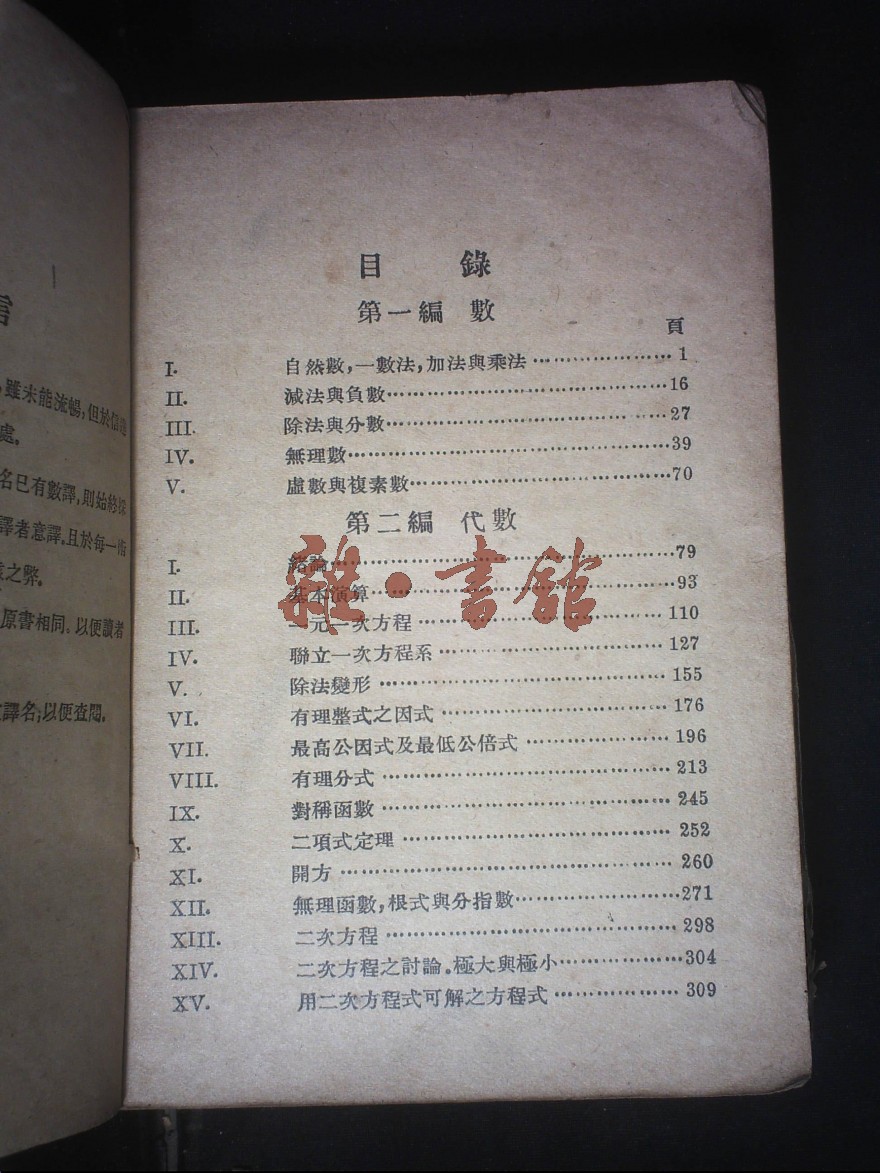 言
,雖未能流暢,但於信達
處。
名已有數譯,則始終採
譯者意譯.且於每一術
之弊。
原書相同。以便讀者
譯名;以便查閱.
目 錄
第一編 數
頁
I. 自然數,一數法,加法與乘法 1
II. 減法與負數 16
III. 除法與分數 27
IV. 無理數 39
V. 虛數與複素數 70
第二編 代數
I. 緒論 79
II. 基本演算 93
III. 一元一次方程 110
IV. 聯立一次方程系 127
V. 除法變形 155
VI. 有理整式之因式 176
VII. 最高公因式及最低公倍式 196
VIII. 有理分式 213
IX. 對稱函數 245
X. 二項式定理 252
XI. 開方 260
XII. 無理函數,根式與分指數 271
XIII. 二次方程 298
XIV. 二次方程之討論。極大與極小 304
XV. 用二次方程式可解之方程式 309
雜·書館